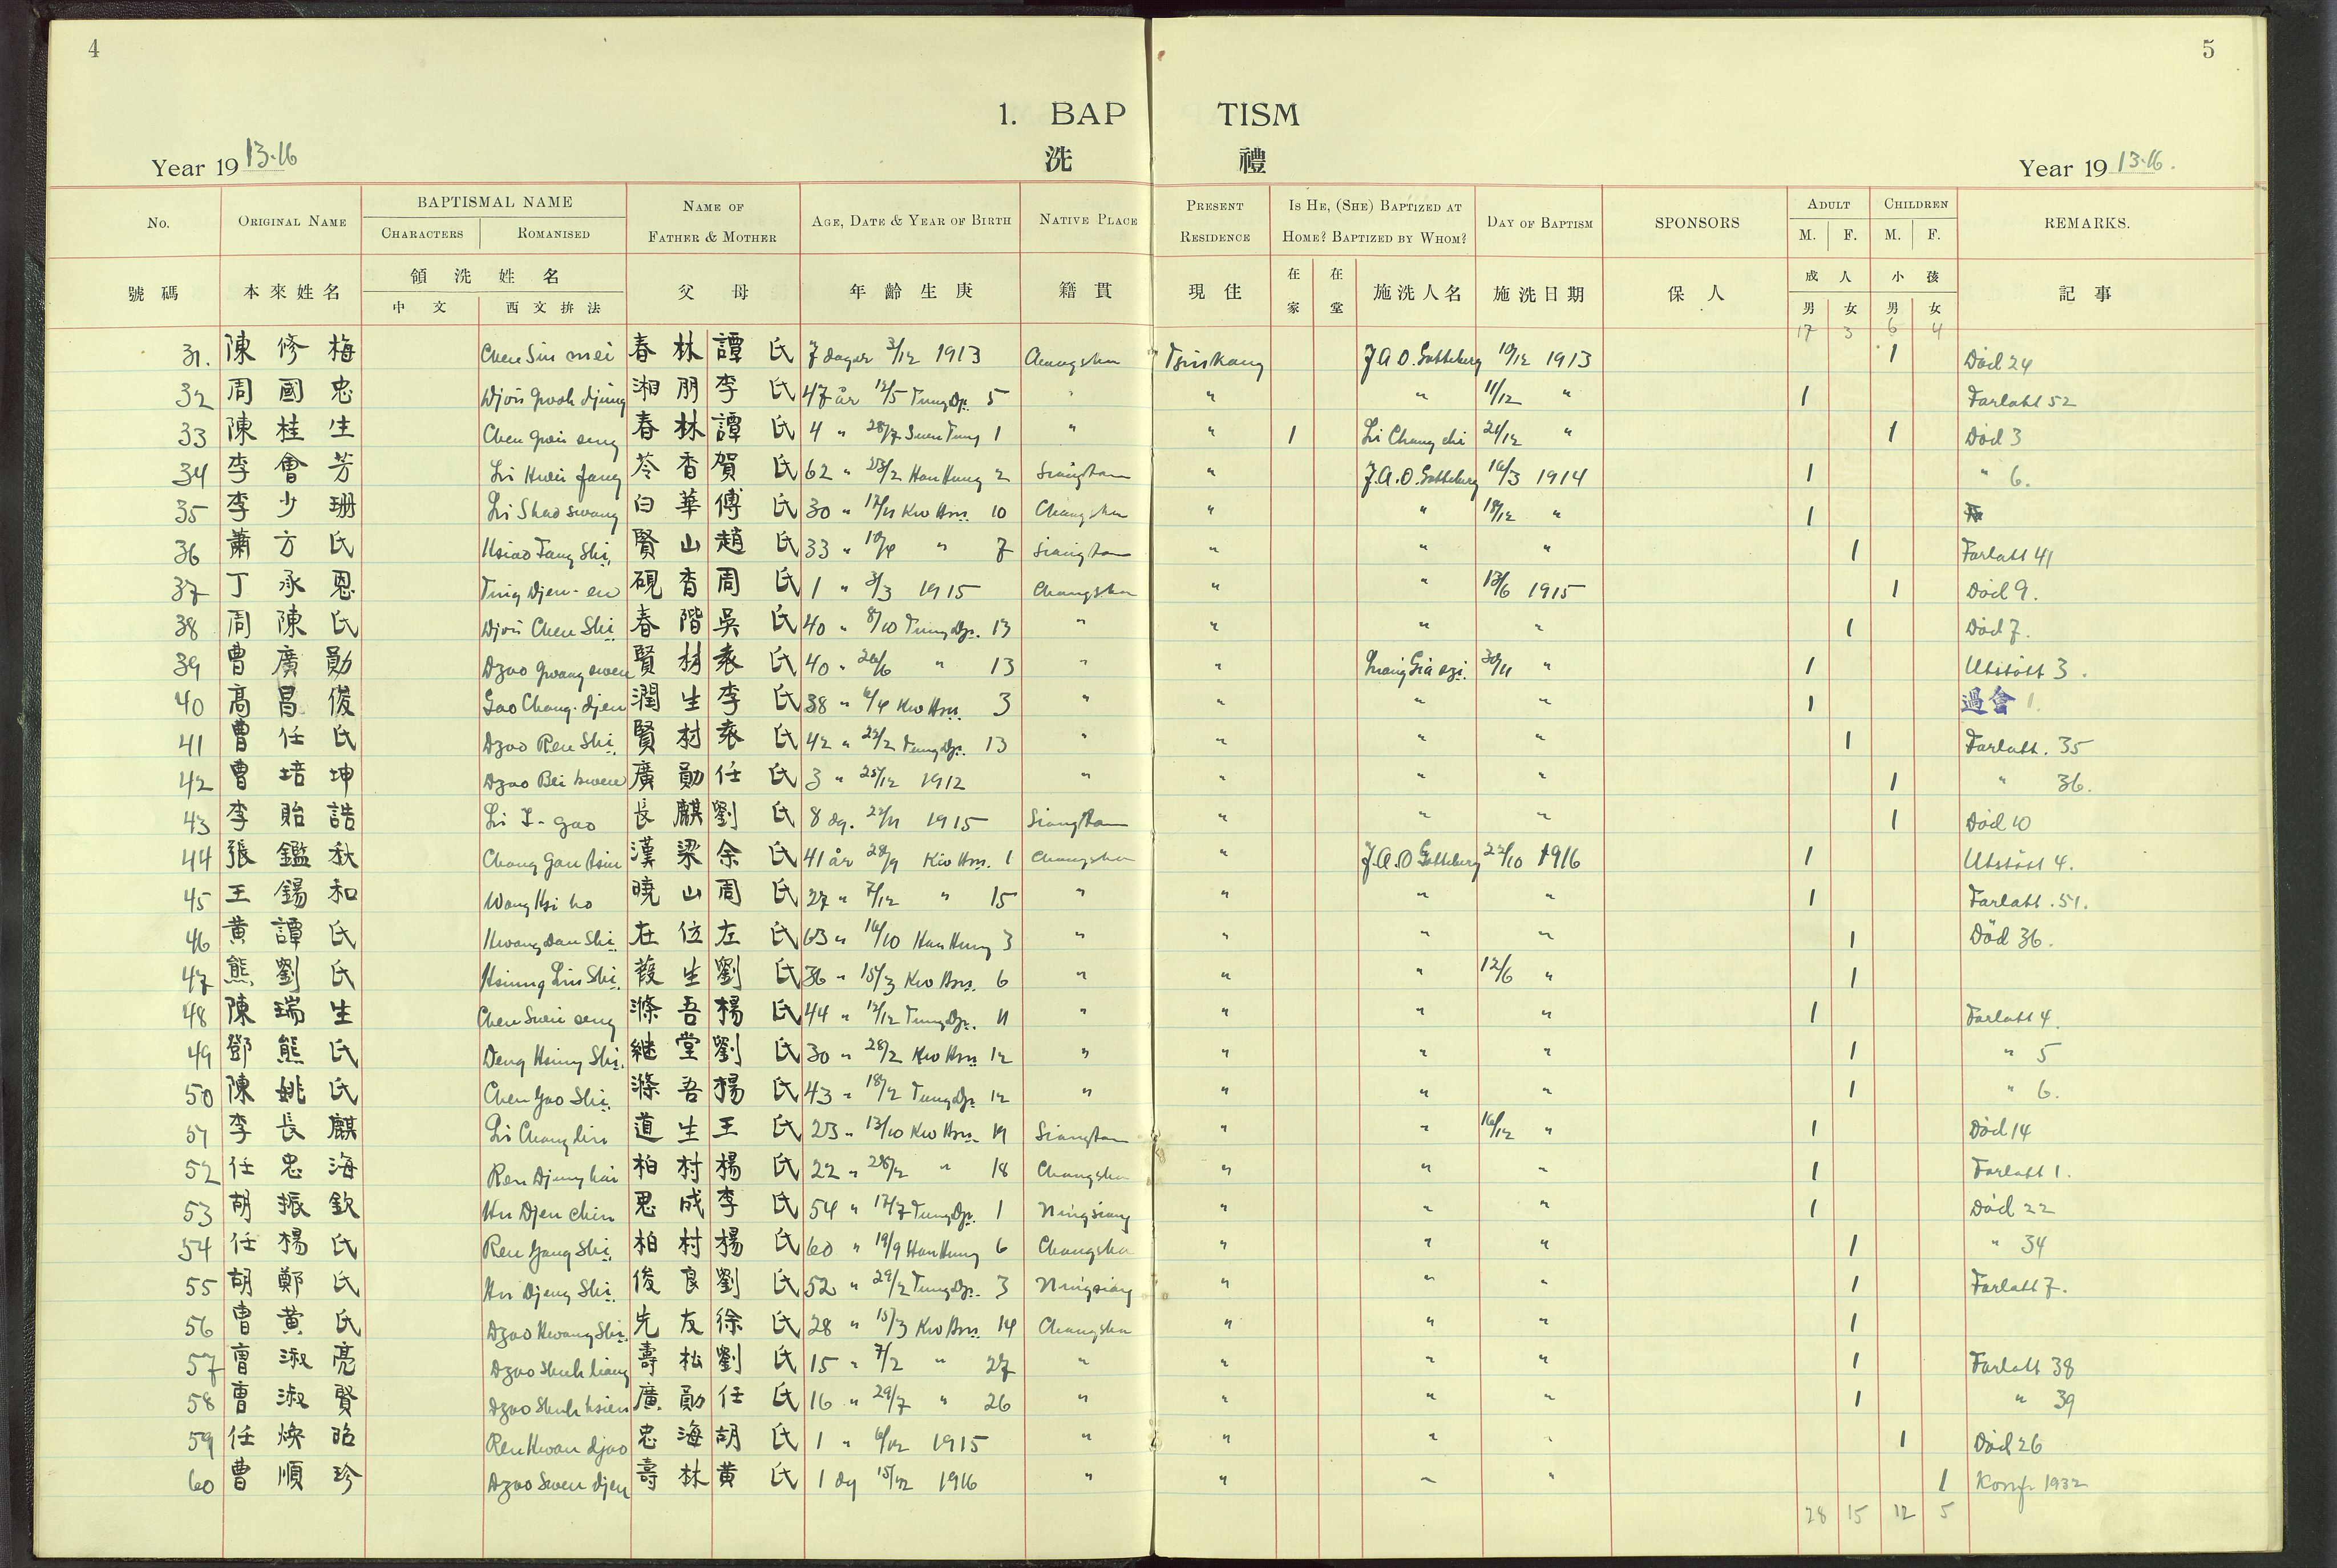 4
5
1. BAP TISM
洗 禮
Year 19 13-16
Year 19 13-16.
No. ORIGINAL NAME BAPTISMAL NAME NAME OF FATHER & MOTHER AGE, DATE & YEAR OF BIRTH NATIVE PLACE PRESENT RESIDENCE IS HE, (SHE) BAPTIZED AT HOME? BAPTIZED BY WHOM? DAY OF BAPTISM SPONSORS ADULT CHILDREN REMARKS.
CHARACTERS ROMANISED M. F. M. F.
號碼 本來姓名 領洗姓名 父母 年齡生庚 籍貫 現住 在家 在堂 施洗人名 施洗日期 保人 成人 小孩 記事
中文 西文拚法 男 女 男 女
17 3 6 4
31. 陳修梅 Chen Siu mei 春林 譚氏 7 dagar 3/12 1913 Changsha Tsinkang J.A.O. Gotteberg 10/12 1913 1 Död 24
32 周國忠 Djou Gwoh djung 湘朋 李氏 47 år 12/5 Tung Dji. 5 " " " 11/12 " 1 Farlatt 52
33 陳桂生 Chen Gwei seng 春林 譚氏 4 " 28/7 Suen Tung 1 " " 1 Li Chang chi 21/12 " 1 Död 3
34 李會芳 Li Hwei fang 苓香 賀氏 62 " 23/2 Han Hung 2 Siangtan " J.A.O. Gotteberg 16/3 1914 1 " 6.
35 李少珊 Li Shao swang 白華 傅氏 30 " 17/11 Kwo Hsu. 10 Changsha " " 18/12 " 1
36 蕭方氏 Hsiao Fang Shi. 賢山 趙氏 33 " 10/4 " 7 Siangtan " " " 1 Farlatt 41
37 丁承恩 Ting Djen-en 硯香 周氏 1 " 3/3 1915 Changsha " " 13/6 1915 1 Död 9.
38 周陳氏 Djou Chen Shi. 春階 吳氏 40 " 8/10 Tung Dji. 13 " " " " 1 Död 7.
39 曹廣勛 Dzao Gwang swen 賢村 袁氏 40 " 20/6 " 13 " " 30/11 " 1 Utstött 3.
40 高昌俊 Gao Chang-djen 潤生 李氏 38 " 6/4 Kwo Hsu. 3 " " " " 1 過會 1.
41 曹任氏 Dzao Ren Shi. 賢村 袁氏 42 " 22/2 Tung Dji. 13 " " " " 1 Farlatt. 35
42 曹培坤 Dzao Bei kwen 廣勛 任氏 3 " 25/12 1912 " " " " 1 " 36.
43 李貽誥 Li I-gao 長麒 劉氏 8 dg. 22/11 1915 Siangtan " " " 1 Död 10
44 張鑑秋 Chang Gan tsiu 漢梁 余氏 41 år 28/9 Kwo Hsu. 1 Changsha " J.A.O Gotteberg 22/10 1916 1 Utstött 4.
45 王錫和 Wang Hsi ho 曉山 周氏 27 " 7/12 " 15 " " " " 1 Farlatt. 51.
46 黄譚氏 Hwang Dan Shi. 在位 左氏 63 " 16/10 Han Hung 3 " " " " 1 Död 36.
47 熊劉氏 Hsiung Liu Shi. 葭生 劉氏 36 " 15/3 Kwo Hsu. 6 " " " 12/6 " 1
48 陳瑞生 Chen Swei seng 滌吾 楊氏 44 " 12/12 Tung Dji. 11 " " " " 1 Farlatt 4.
49 鄧熊氏 Deng Hsiung Shi. 継堂 劉氏 30 " 28/2 Kwo Hsu 12 " " " " 1 " 5
50 陳姚氏 Chen Yao Shi. 滌吾 楊氏 43 " 18/2 Tung Dji. 12 " " " " 1 " 6.
51 李長麒 Li Chang lin 道生 王氏 23 " 13/10 Kwo Hsu. 19 Siangtan " " 16/12 " 1 Död 14
52 任忠海 Ren Djung hai 柏村 楊氏 22 " 28/2 " 18 Changsha " " " 1 Farlatt 1.
53 胡振欽 Hu Djen chin 思成 李氏 54 " 17/7 Tung Dji. 1 Ningsiang " " " 1 Död 22
54 任楊氏 Ren Yang Shi. 柏村 楊氏 60 " 19/9 Han Hung 6 Changsha " " " 1 " 34
55 胡鄭氏 Hu Djeng Shi. 俊良 劉氏 52 " 29/2 Tung Dji. 3 Ningsiang " " " 1 Farlatt 7.
56 曹黄氏 Dzao Hwang Shi. 先友 徐氏 28 " 15/3 Kwo Hsu. 14 Changsha " " " 1
57 曹淑亮 Dzao Shuh liang 壽松 劉氏 15 " 7/2 " 27 " " " " 1 Farlatt 38
58 曹淑賢 Dzao Shuh hsien 廣勛 任氏 16 " 29/7 " 26 " " " " 1 " 39
59 任煥昭 Ren Hwan djao 忠海 胡氏 1 " 6/12 1915 " " " " 1 Död 26
60 曹順珍 Dzao Swen djen 壽林 黄氏 1 dg 15/12 1916 " " " " 1 Konf. 1932
28 15 12 5